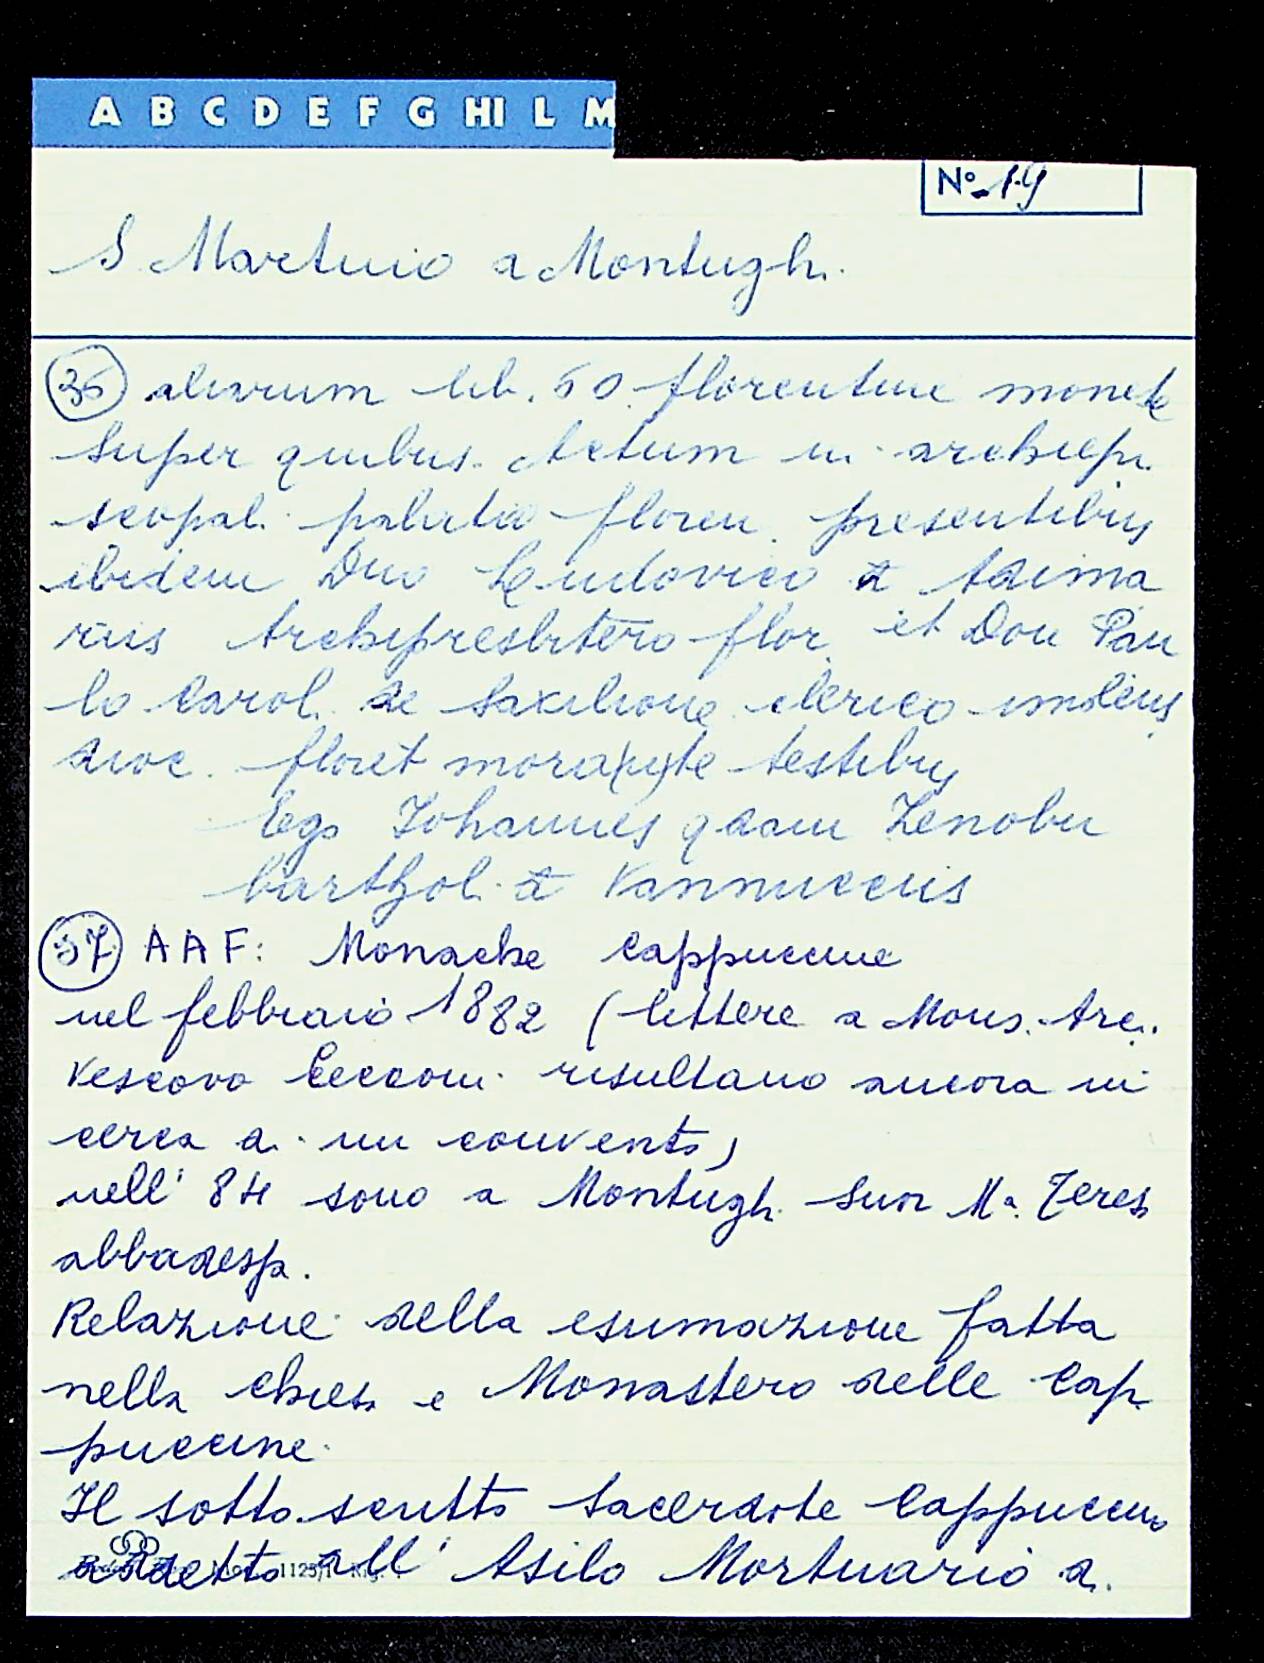 A B C D E F G HI L M
No 19
S Martino a Montughi
36 alivrum lib. 50 florentine monete
super quibus. Actum in archiepi
scopali palatio floren. presentibus
ibidem Dno Ludovico de Adima
riis Archipresbitero flor. et Don Pau
lo Carol. de Saxilione clerico imolens
dioc. floret morante testibus
Ego Iohannes qdam Zenobii
barthol. de Vannucciis
37 AAF: Monache Cappuccine
nel febbraio 1882 (lettere a Mons. Arci
vescovo Cecconi risultano ancora in
cerca di un convento)
nell' 84 sono a Montughi Suor Ma. Teresa
abbadessa.
Relazione della esumazione fatta
nella chiesa e Monastero delle Cap
puccine.
Il sottoscritto Sacerdote Cappuccino
addetto all' Asilo Mortuario di